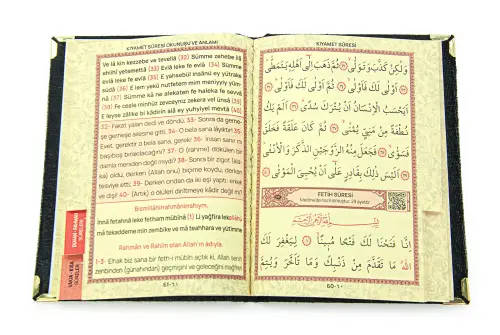 KIYAMET SÛRESİ OKUNUŞU VE ANLAMI
Ve lâ kin kezzebe ve tevellâ (32) Sümme zehebe ilâ
ehlihî yetemettâ (33) Evlâ leke fe evlâ (34) Sümme
evlâ leke fe evlâ (35) E yahsebül insânü ey yütrake
südâ (36) E lem yekü nutfetem mim meniyyiy yüm-
nâ (37) Sümme kâ ne alekaten fe haleka fe sevvâ
(38) Fe ceale minhüz zevceyniz zekera vel ünsâ (39)
E leyse zâlike bi kâdirin alâ ey yuhyiyel mevtâ (40)
32- Fakat yalan dedi ve döndü. 33- Sonra da gerne-
şe gerneşe ailesine gitti. 34- O bela sana lâyıktır! 35-
Evet, gerektir o bela sana, gerek! 36- İnsan
başıboş bırakılacağını? 37- O (rahme) dökülen
damla meniden değil miydi? 38- Sonra bir
oldu, derken (Allah onu) biçime koydu, derken
tesviye etti. 39- Derken ondan da iki eşi yaptı: erkek
ve dişi! 40- (Artık) o ölüleri diriltmeye kâdir değil mi
Bismillâhirrahmânirrahîym.
İnnâ fetahnâ leke fetham mübînâ (1) Li yağfira lekellâhü
mâ tekaddeme min zembike ve mâ teahhara ve yütimme
Rahmân ve Rahîm olan Allah'ın adıyla.
1-3- Elhak biz sana bir feth-i mübîn açtık ki, Allah senin
zenbinden (günahından) geçmişini ve geleceğini mağfiret
61-1
KIYAMET SÛRESİ
وَلٰكِنْ كَذَّبَ وَتَوَلّٰىۙ ﴿٣٢﴾ ثُمَّ ذَهَبَ اِلٰٓى اَهْلِه۪ يَتَمَطّٰىۜ
﴿٣٣﴾ اَوْلٰى لَكَ فَاَوْلٰىۙ ﴿٣٤﴾ ثُمَّ اَوْلٰى لَكَ فَاَوْلٰىۜ ﴿٣٥﴾
اَيَحْسَبُ الْاِنْسَانُ اَنْ يُتْرَكَ سُدًىۜ ﴿٣٦﴾ اَلَمْ يَكُ
نُطْفَةً مِنْ مَنِيٍّ يُمْنٰىۙ ﴿٣٧﴾ ثُمَّ كَانَ عَلَقَةً فَخَلَقَ
فَسَوّٰىۙ ﴿٣٨﴾ فَجَعَلَ مِنْهُ الزَّوْجَيْنِ الذَّكَرَ وَالْاُنْثٰىۜ
﴿٣٩﴾ اَلَيْسَ ذٰلِكَ بِقَادِرٍ عَلٰٓى اَنْ يُحْيِيَ الْمَوْتٰى ﴿٤٠﴾
FETİH SÛRESİ
Medine'de nazil olmuştur. 29 ayettir.
بِسْمِ اللّٰهِ الرَّحْمٰنِ الرَّح۪يمِ
اِنَّا فَتَحْنَا لَكَ فَتْحًا مُب۪ينًاۙ ﴿١﴾ لِيَغْفِرَ لَكَ
اللّٰهُ مَا تَقَدَّمَ مِنْ ذَنْبِكَ وَمَا تَاَخَّرَ وَيُتِمَّ
60-1